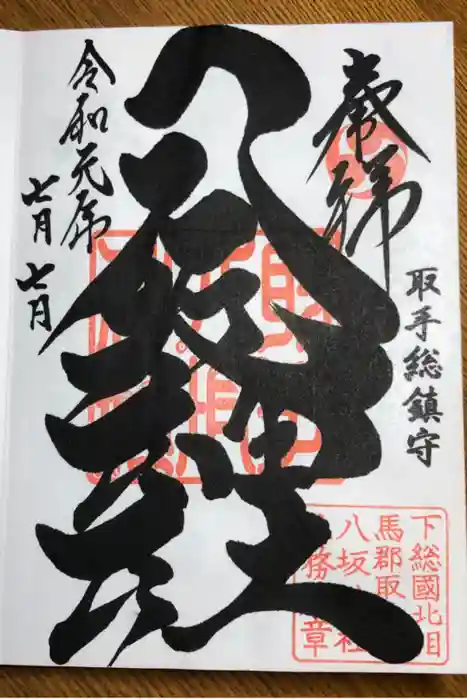 奉拝
取手総鎮守
八坂神社
令和元年
七月七日
下総國北相
馬郡取
八坂 社
務 章